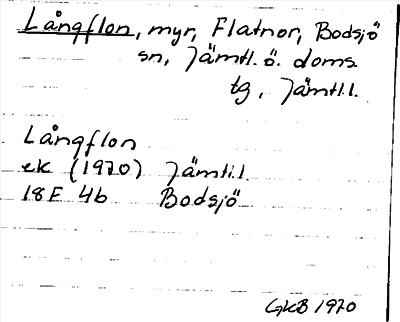 Långflon, myr, Flatnor, Bodsjö
sn, Jämtl. ö. doms.
tg, Jämtl.l.
Långflon
ek (1970) Jämtl.l.
18F 4b Bodsjö
GKB 1970